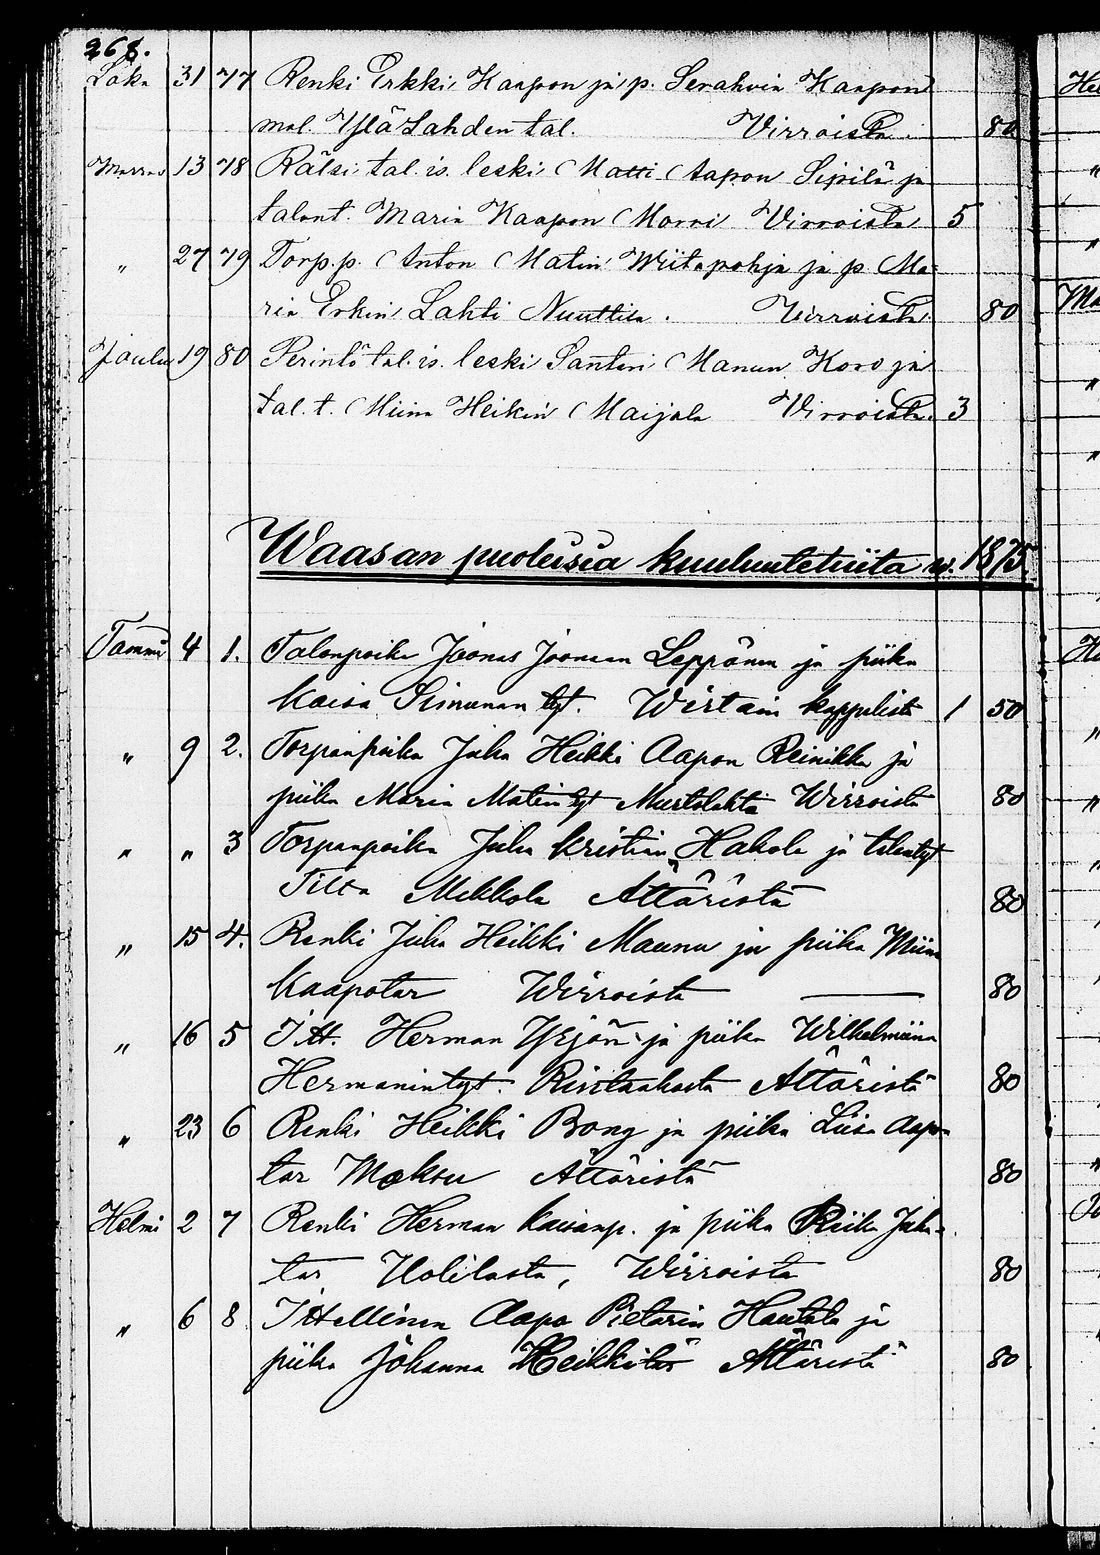 268.
Loka 31 77 Renki Erkki Kaapon ja p. Serahvia Kaapon
mol. Ylä Lahden tal. Virroista. 80
Marras 13 78 Rälsi tal. is. leski Matti Aapon Sipilä ja
talont. Maria Kaapon Morri Virroista 5
" 27 79 Torp.p. Anton Matin Wiitapohja ja p. Ma-
ria Erkin Lahti Nuuttila. Virroista 80
Joulu 19 80 Perintö tal. is. leski Santeri Manun Koro ja
tal. t. Miina Heikin Maijala Virroista. 3
Waasan puoleisia kuulutetuita w. 1875.
Tammi 4 1. Talonpoika Joonas Joonaan Leppänen ja piika
Kaisa Simunan tyt. Wirtain kappelista 1 50
" 9 2. Torpanpoika Juha Heikki Aapon Reinikka ja
piika Maria Matintyt Murtolahti Wirroista 80
" " 3 Torpanpoika Juha Kristian Hakola ja talontyt
Tilta Mikkola Ättäristä 80
" 15 4. Renki Juha Heikki Maunu ja piika Miina
Kaapotar Wirroista 80
" 16 5 Itt. Herman Yrjön ja piika Wilhelmiina
Hermanintyt. Rintankasta Ättäristä 80
" 23 6 Renki Heikki Bong ja piika Liisa Aapo-
tar Moksu Ättäristä 80
Helmi 2 7 Renki Herman Kaaanp. ja piika Riika Juha-
tar Uolilasta, Wirroista 80
" 6 8 Itellinen Aapo Pietarin Hautala ja
piika Johanna Heikkitär Ättäristä 80